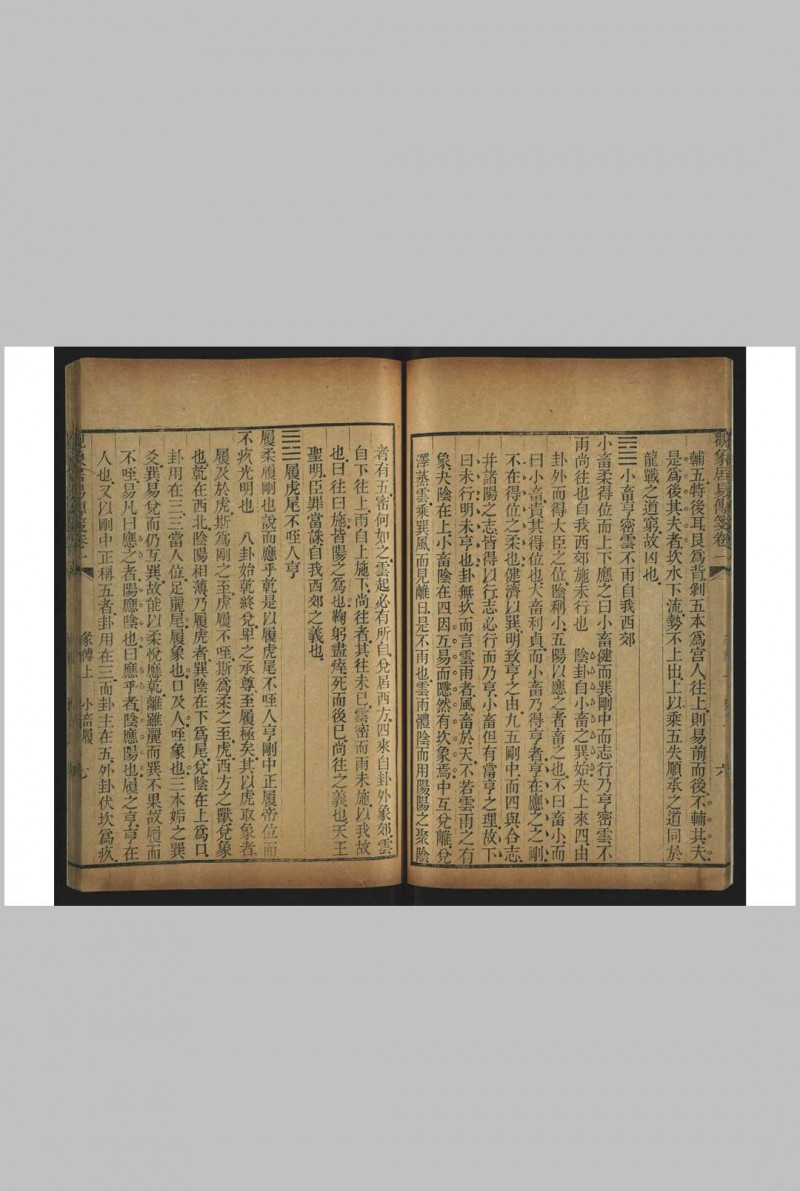 觀象居易傳箋卷一
六
輔五特後耳艮爲背剝五本爲宮人往上則易前而後不輔其夫
是爲後其夫者坎水下流勢不上出上以乘五失順承之道同於
龍戰之道窮故凶也
䷈小畜亨密雲不雨自我西郊
小畜柔得位而上下應之曰小畜健而巽剛中而志行乃亨密雲不
雨尚往也自我西郊施未行也 陰卦自小畜之巽始夬上來四由
卦外而得大臣之位陰稱小五陽以應之者畜之也不曰畜小而
曰小畜貴其得位也大畜利貞而小畜乃得亨者亨在應之之剛
不在得位之柔也健濟以巽明致亨之由九五剛中而四與合志
并諸陽之志皆得以行志必行而乃亨小畜但有當亨之理故下
曰未行明未亨也卦無坎而言雲雨者風畜於天不若雲雨之有
象夬陰在上小畜陰在四因互易而隱然有坎象焉中互兌離兌
澤蒸雲乘巽風而見離日是不雨也雲雨體陰而用陽陽之聚陰
者有五密何如之雲起必有所自兌居西方四來自卦外象郊雲
自下往上雨自上施下尚往者其往未已雲密而雨未施以我故
也曰往曰施皆陽之爲也鞠躬盡瘁死而後已尚往之義也天王
聖明臣罪當誅自我西郊之義也
䷉履虎尾不咥人亨
履柔履剛也說而應乎乾是以履虎尾不咥人亨剛中正履帝位而
不疚光明也 八卦始乾終兌卑之承尊至履極矣其以虎取象者
履及於虎斯爲剛之至虎履不咥斯爲柔之至虎西方之獸兌象
也乾在西北陰陽相薄乃履虎者巽陰在下爲尾兌陰在上爲口
卦用在三三當人位足躡尾履象也口及人咥象也三本姤之巽
爻巽易兌而仍互巽故能以柔悅應乾離雖麗而巽不果故履而
不咥易凡曰應之者陽應陰也曰應乎者陰應陽也履之亨亨在
人也又以剛中正稱五者卦用在三而卦主在五外卦伏坎爲疚
彖傳上 小畜履
七